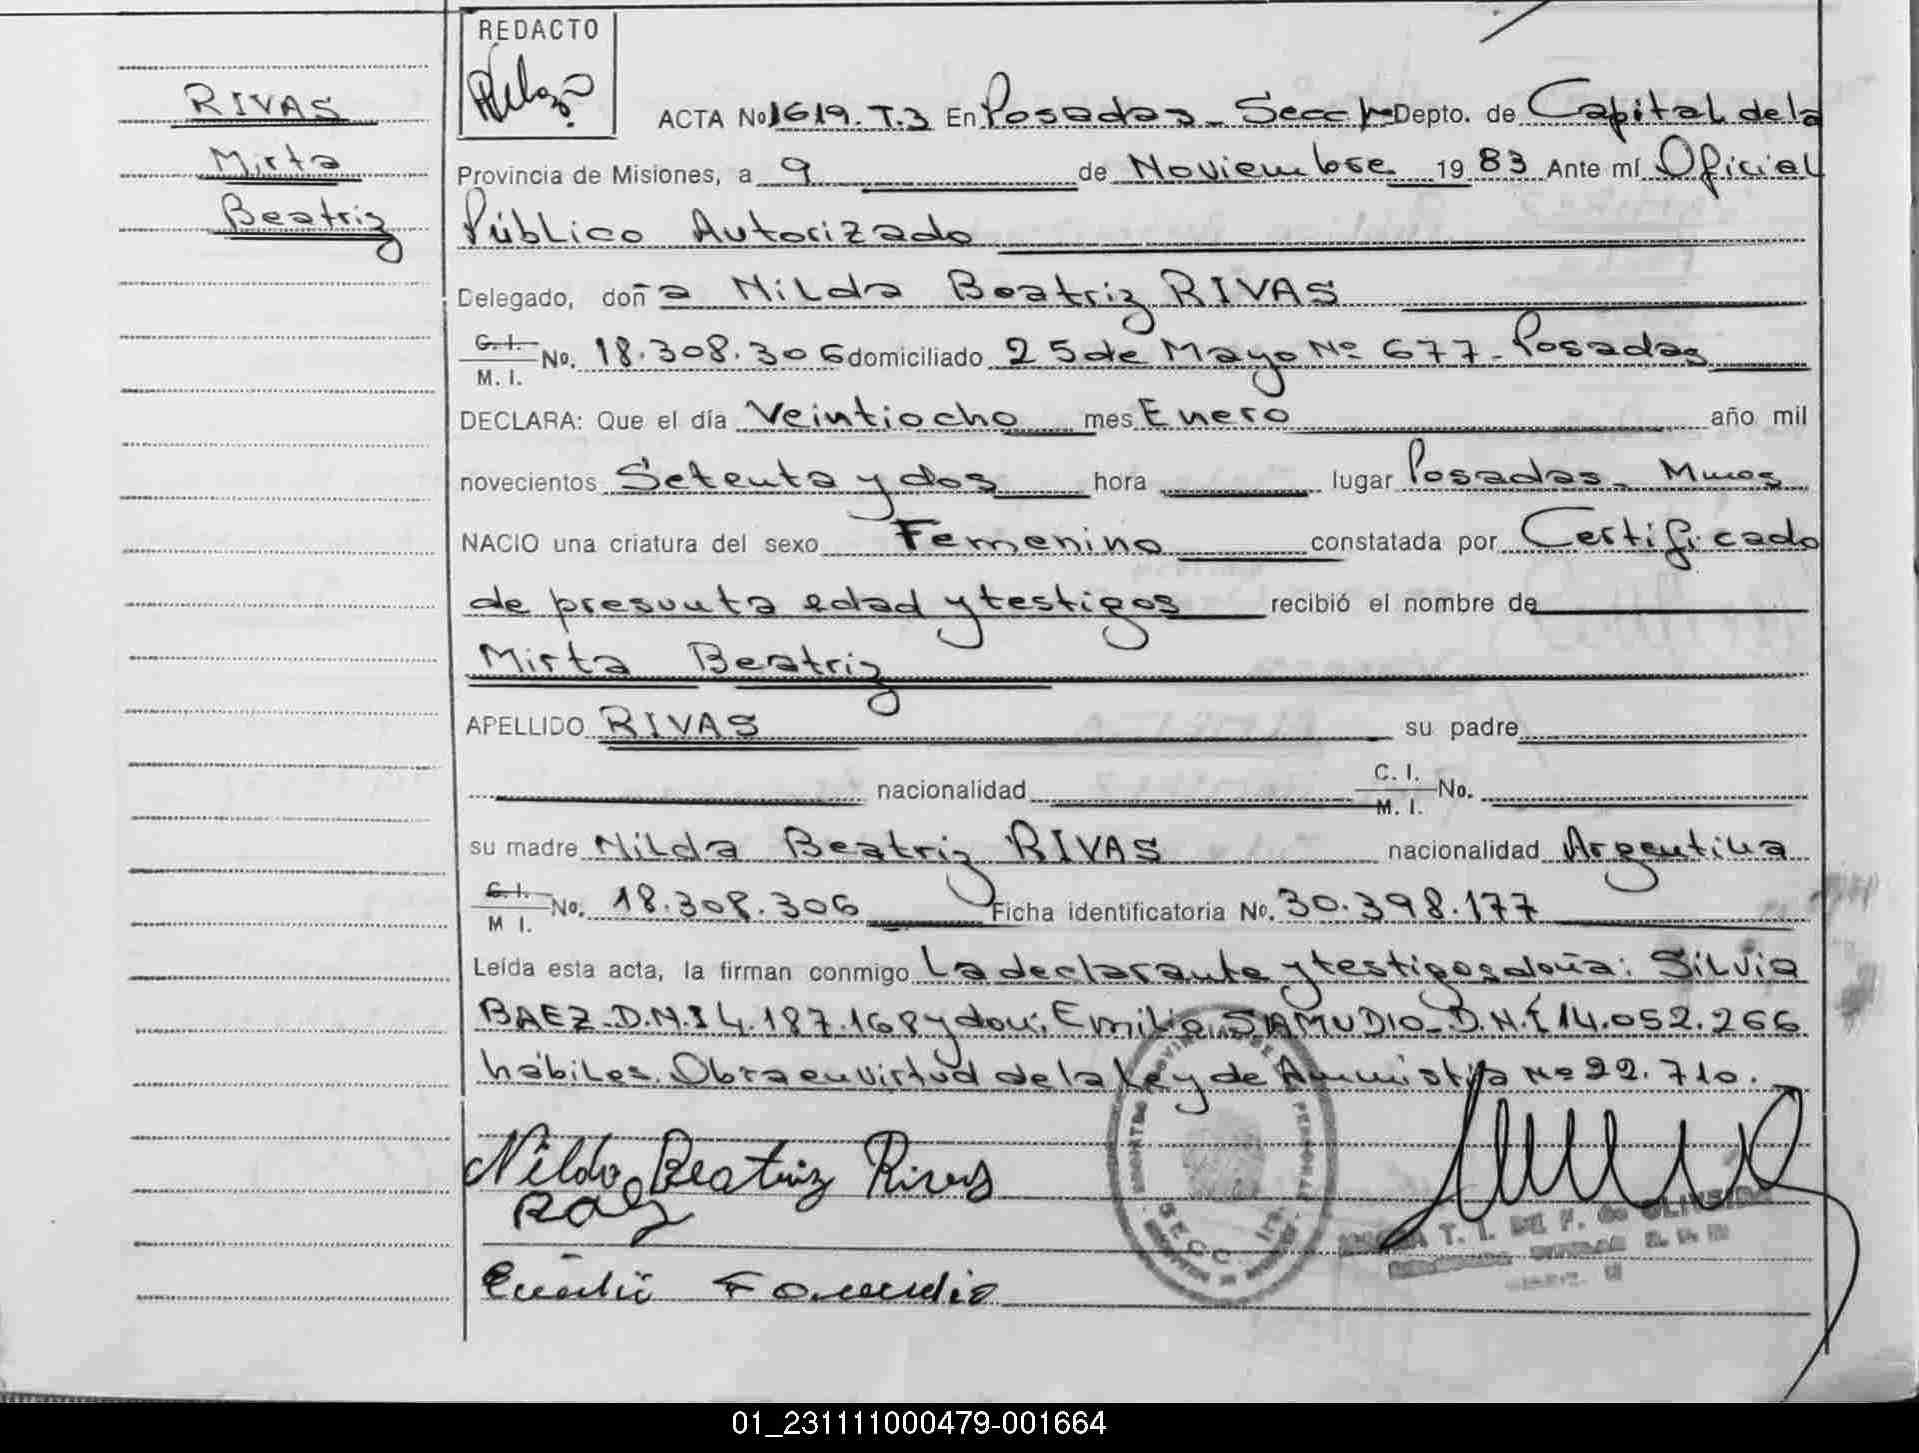 REDACTO
RIVAS
Mirta
Beatriz
ACTA No 1619. T.3 En Posadas - Secc 1ª Depto. de Capital de la
Provincia de Misiones, a 9 de Noviembre 19 83 Ante mí Oficial
Público Autorizado
Delegado, doña Nilda Beatriz RIVAS
C. I. / M. I. No. 18.308.306 domiciliado 25 de Mayo Nº 677 - Posadas
DECLARA: Que el día Veintiocho mes Enero año mil
novecientos Setenta y dos hora lugar Posadas - Mnes
NACIO una criatura del sexo Femenino constatada por Certificado
de presunta edad y testigos recibió el nombre de
Mirta Beatriz
APELLIDO RIVAS su padre
nacionalidad C. I. / M. I. No.
su madre Nilda Beatriz RIVAS nacionalidad Argentina
C. I. / M I. No. 18.308.306 Ficha identificatoria No. 30.398.177
Leída esta acta, la firman conmigo La declarante y testigos doña: Silvia
BAEZ - D.N.I 4.187.168 y don: Emilio SAMUDIO - D.N.I 14.052.266
hábiles. Obra en virtud de la Ley de Amnistía Nº 22.710.
Nilda Beatriz Rivas
SECC. 1ª
T. I. DE F. de OLIVEIRA
01_231111000479-001664